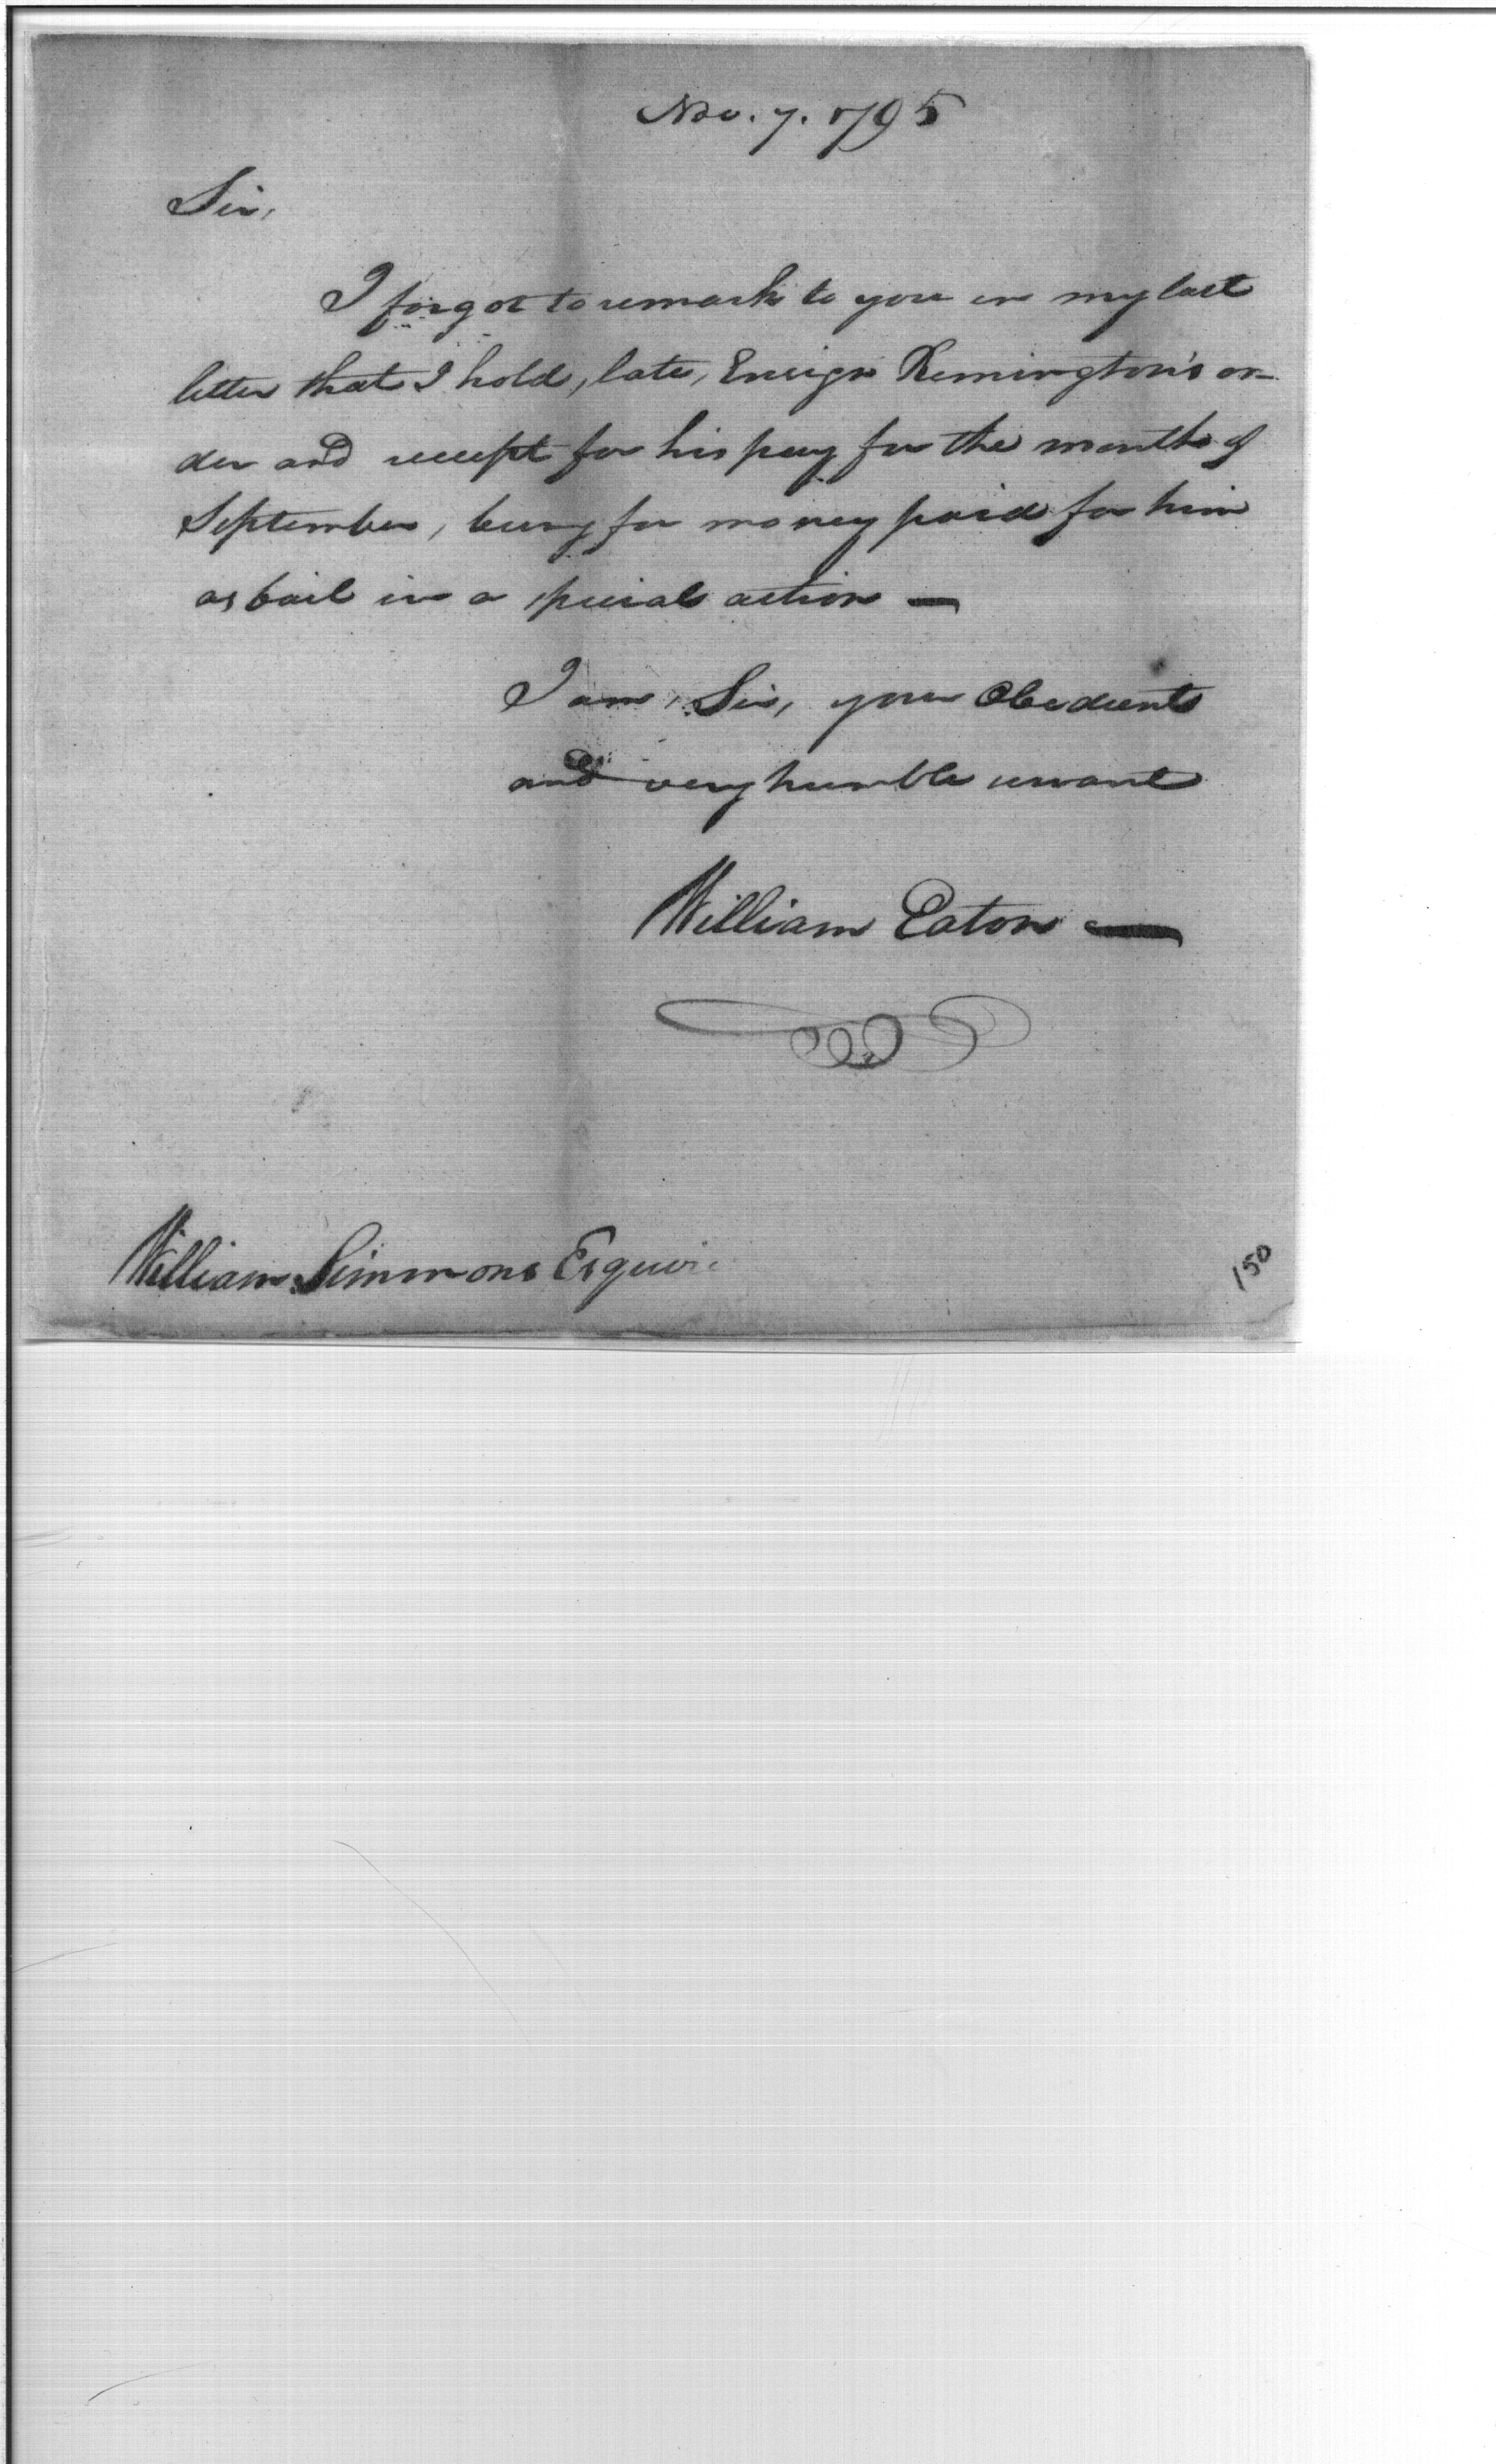 Nov. 7. 1795
Sir,
I forgot to remark to you in my last
letter that I hold, late, Ensign Remington's or-
der and receipt for his pay for the month of
September, being for money paid for him
as bail in a special action —
I am, Sir, your Obedient
and very humble servant
William Eaton —
William Simmons Esquire
150